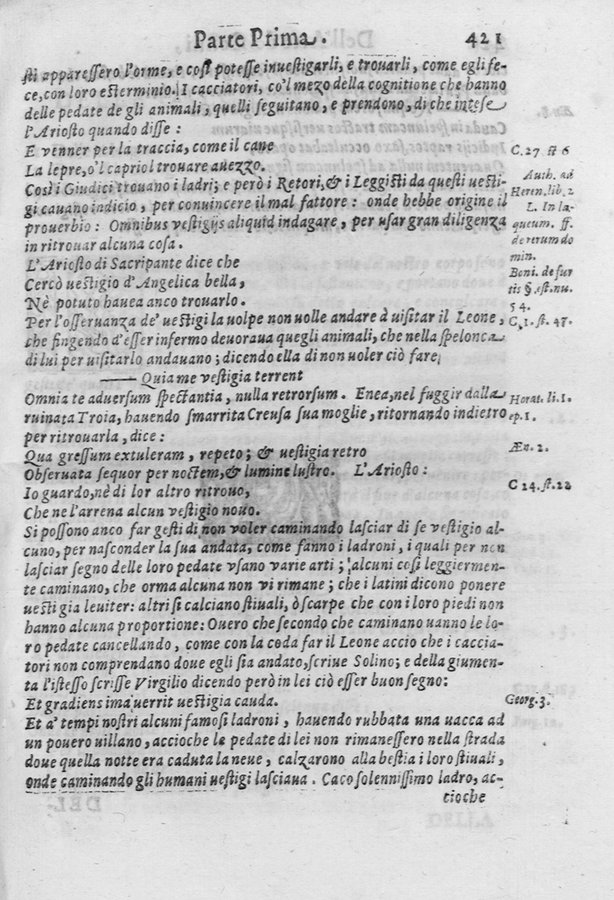 Parte Prima. 421
sti apparessero l'orme, e così potesse inuestigarli, e trouarli, come egli fe-
ce, con loro esterminio. I cacciatori, co'l mezo della cognitione che hanno
delle pedate de gli animali, quelli seguitano, e prendono, di che intese
l'Ariosto quando disse:
E venner per la traccia, come il cane
La lepre, o'l capriol trouare auezzo. C. 27. st 6
Così i Giudici trouano i ladri; e però i Retori, & i Leggisti da questi uesti- Auth. ad
gi cauano indicio, per conuincere il mal fattore: onde hebbe origine il Heren. lib. 2
prouerbio: Omnibus vestigijs aliquid indagare, per usar gran diligenza L. In la-
in ritrouar alcuna cosa. queum. ff.
L'Ariosto di Sacripante dice che de rerum do
Cercò uestigio d'Angelica bella, min.
Nè potuto hauea anco trouarlo. Boni. de fur
tis §. est. nu.
54.
Per l'osseruanza de' uestigi la uolpe non uolle andare à uisitar il Leone, C. 1. st. 47.
che fingendo d'esser infermo deuoraua quegli animali, che nella spelonca
di lui per uisitarlo andauano; dicendo ella di non uoler ciò fare,
—— Quia me vestigia terrent
Omnia te aduersum spectantia, nulla retrorsum. Enea, nel fuggir dalla Horat. li. 1.
ruinata Troia, hauendo smarrita Creusa sua moglie, ritornando indietro ep. 1.
per ritrouarla, dice:
Qua gressum extuleram, repeto; & uestigia retro Æn. 2.
Obseruata sequor per noctem, & lumine lustro. L'Ariosto:
Io guardo, nè di lor altro ritrouo, C 24. st. 22
Che ne l'arrena alcun vestigio nouo.
Si possono anco far gesti di non voler caminando lasciar di se vestigio al-
cuno, per nasconder la sua andata, come fanno i ladroni, i quali per non
lasciar segno delle loro pedate vsano varie arti; alcuni cosi leggiermen-
te caminano, che orma alcuna non vi rimane; che i latini dicono ponere
uestigia leuiter: altri si calciano stiuali, ò scarpe che con i loro piedi non
hanno alcuna proportione: Ouero che secondo che caminano uanno le lo-
ro pedate cancellando, come con la coda far il Leone accio che i caccia-
tori non comprendano doue egli sia andato, scriue Solino; e della giumen-
ta l'istesso scrisse Virgilio dicendo però in lei ciò esser buon segno:
Et gradiens ima uerrit uestigia cauda. Georg. 3.
Et a' tempi nostri alcuni famosi ladroni, hauendo rubbata una uacca ad
un pouero uillano, accioche le pedate di lei non rimanessero nella strada
doue quella notte era caduta la neue, calzarono alla bestia i loro stiuali,
onde caminando gli humani uestigi lasciaua. Caco solennissimo ladro, ac-
cioche